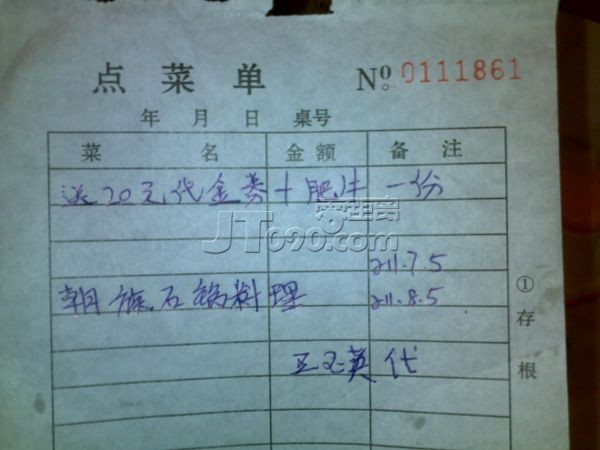 点菜单 No 0111861
年 月 日 桌号
菜 名 金额 备注
送20元代金券+肥牛 一份
JT090.com
211.7.5
朝族石锅料理 211.8.5
①存根
王玉英 代